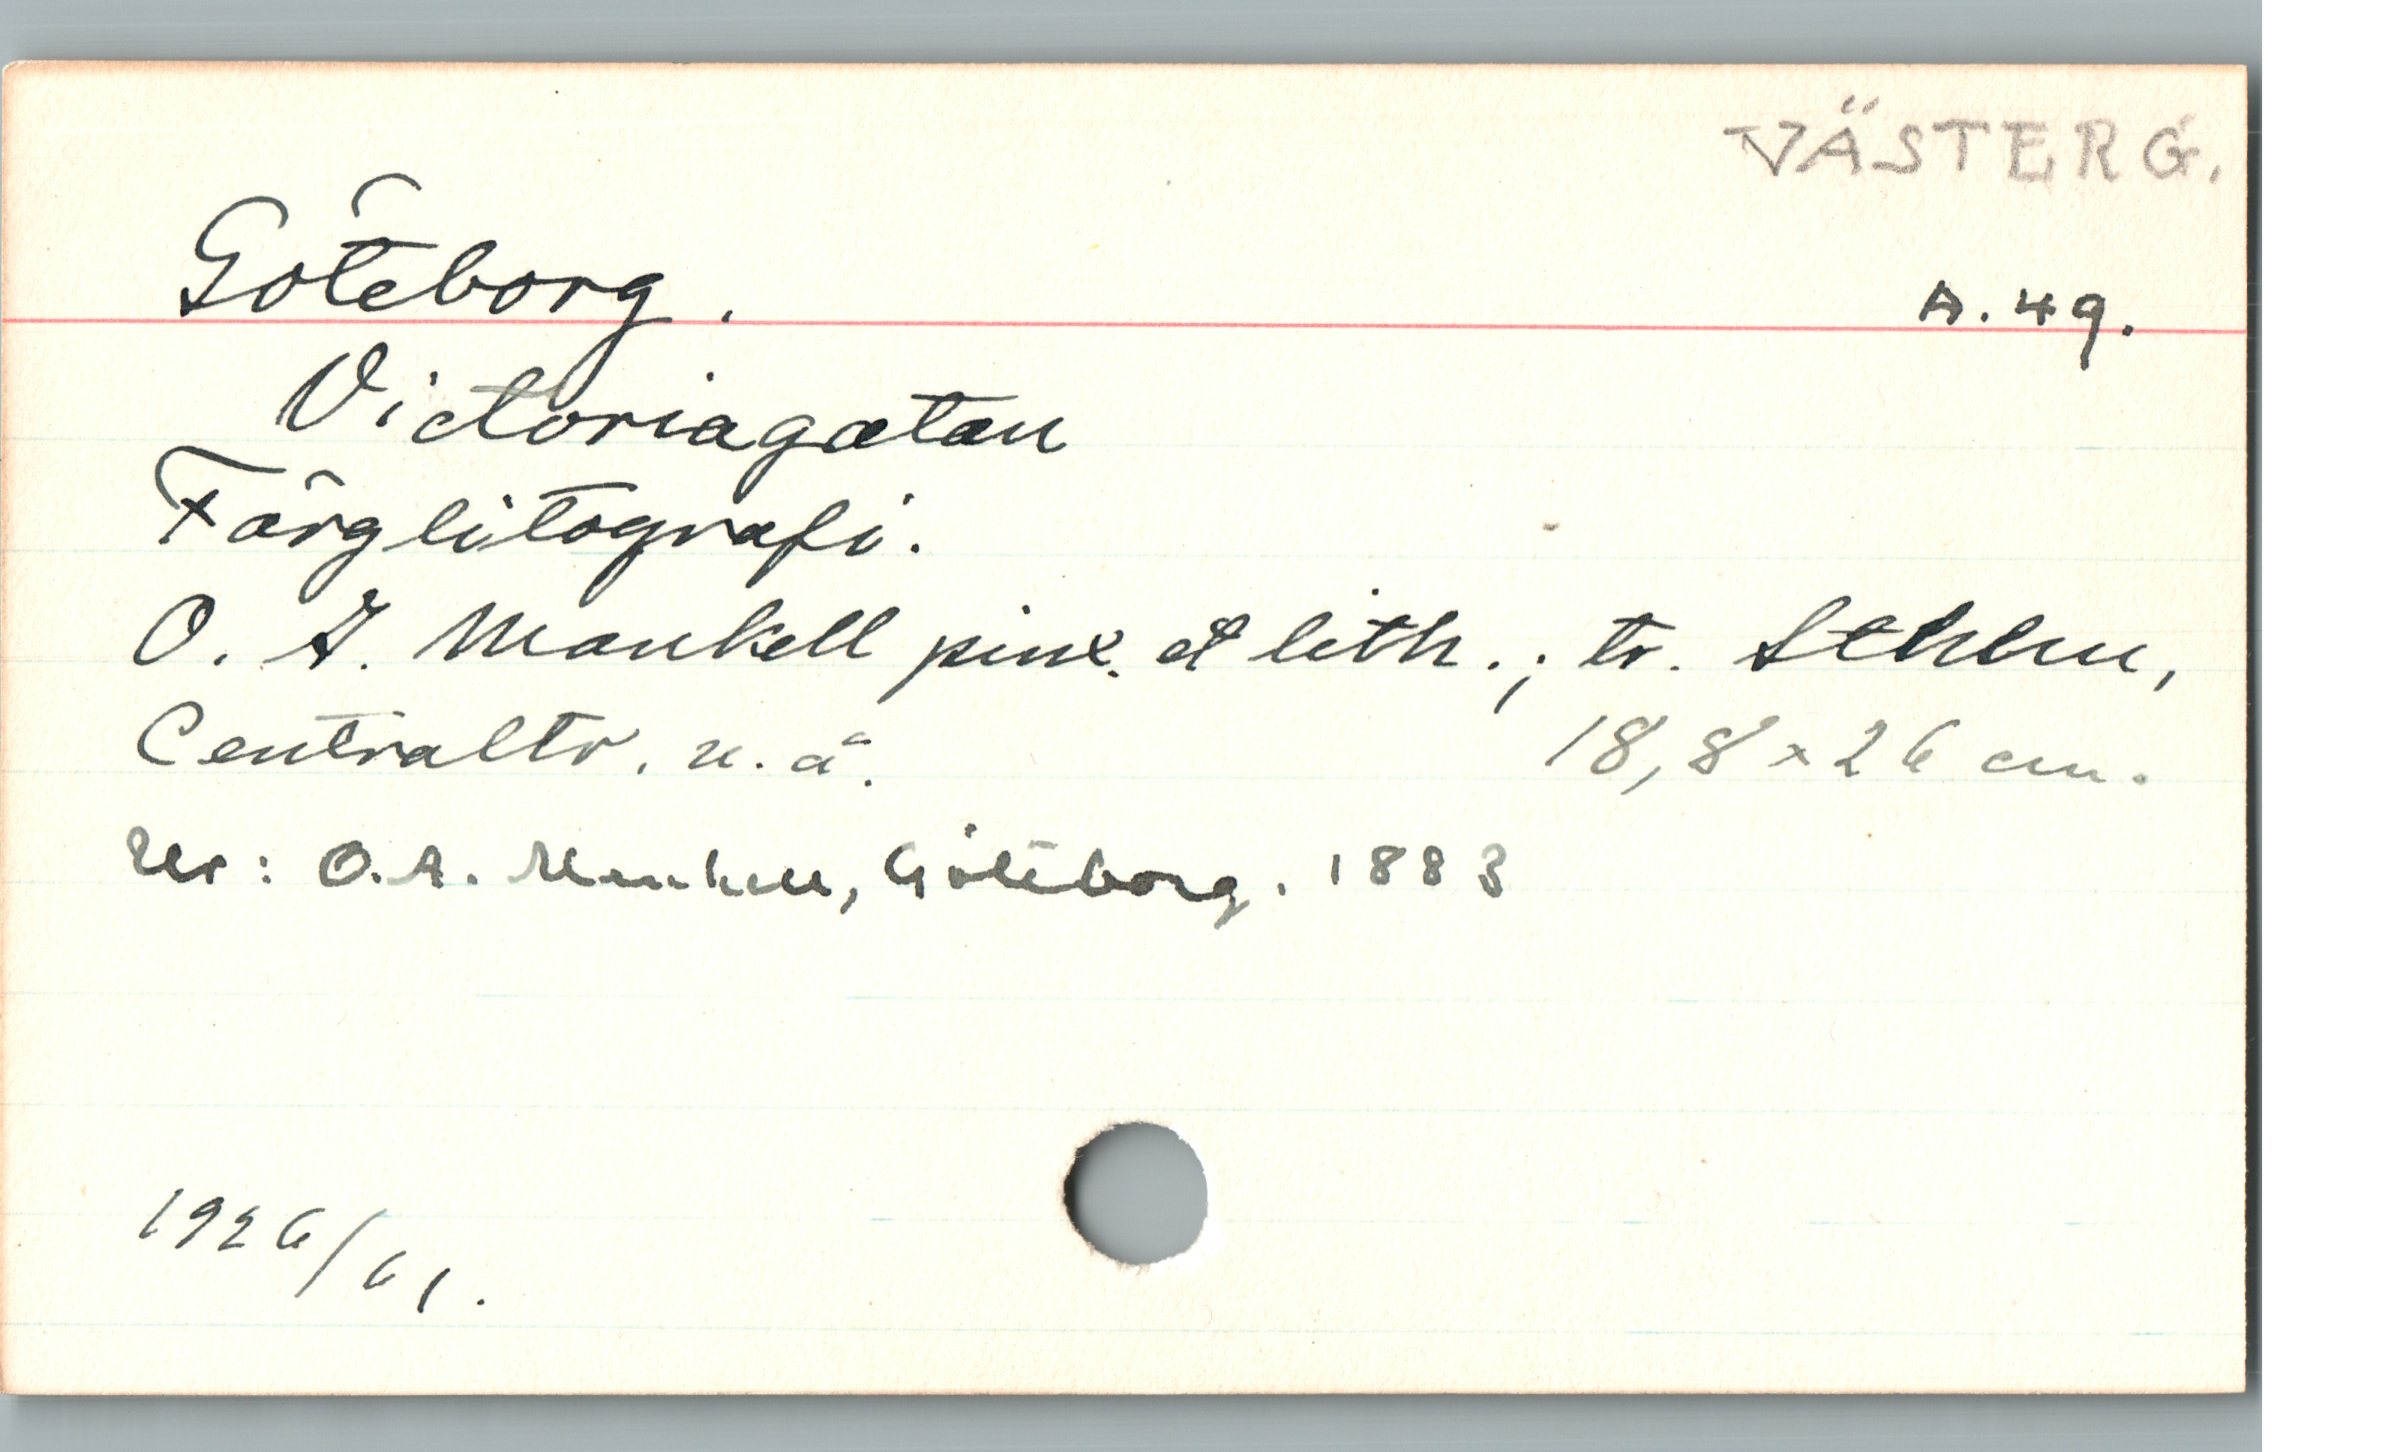 VÄSTERG.
Göteborg.
A. 49.
Victoriagatan
Färglitografi.
O. A. Mankell pinx. et lith.; tr. Sthlm,
Centraltr. u. å. 18,8 × 26 cm.
Ur: O. A. Mankell, Göteborg. 1883
1926/61.